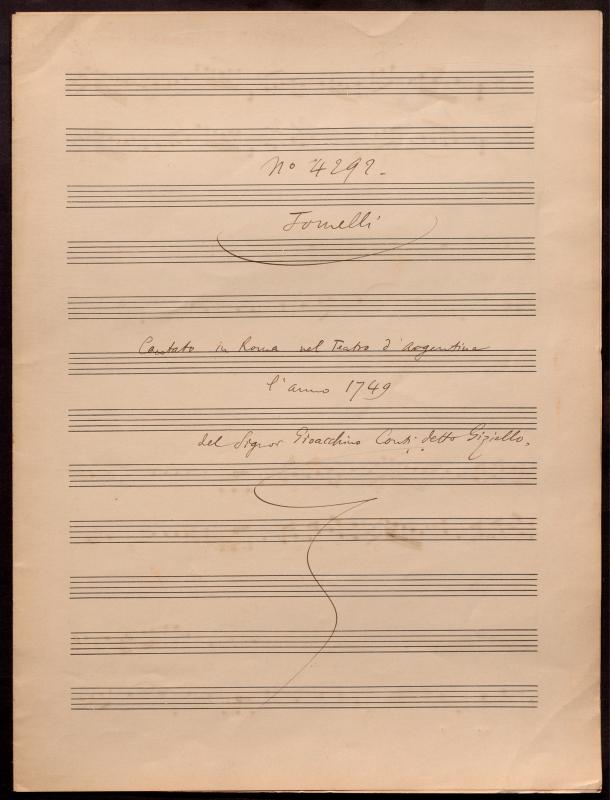 No 4292.
Jomelli
Cantato in Roma nel Teatro d'Argentina
l'anno 1749
del Signor Gioacchino Conti detto Giziello.